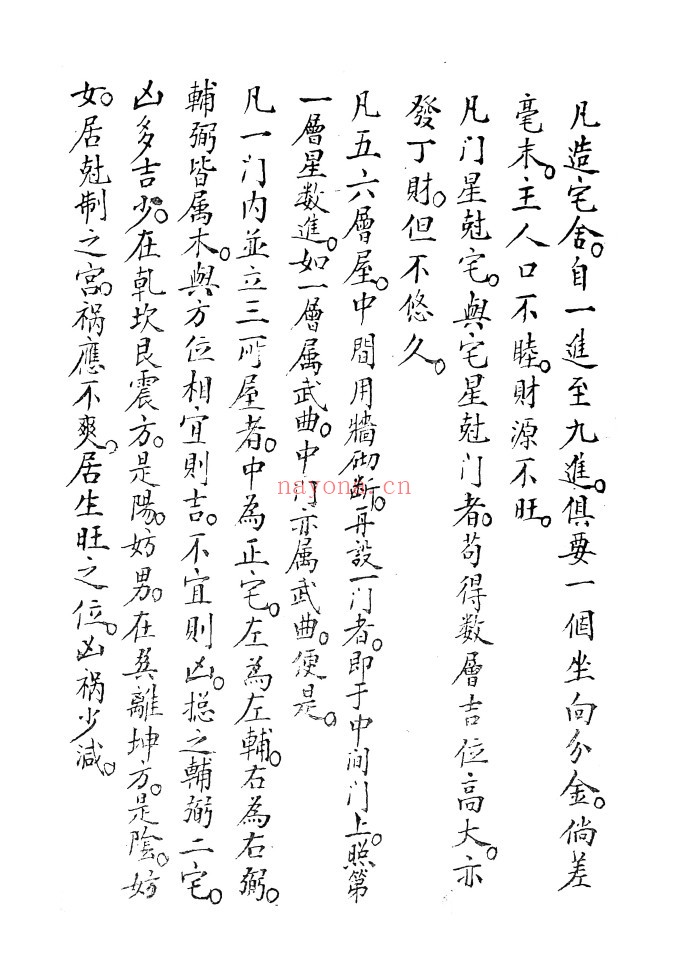 凡造宅舍。自一進至九進。俱要一個坐向分金。倘差
毫末。主人口不睦。財源不旺。
凡门星尅宅。與宅星尅门者。苟得数層吉位高大。亦
發丁財。但不悠久。
凡五六層屋。中間用牆砌断。再設一门者。即于中间门上。照第
一層星数進。如一層属武曲。中门亦属武曲。便是。
凡一门内並立三所屋者。中為正宅。左為左輔。右為右弼。
輔弼皆属木。與方位相宜則吉。不宜則凶。摠之輔弼二宅。
凶多吉少。在乾坎艮震方。是陽。妨男。在巽離坤方。是陰。妨
女。居尅制之宮。祸應不爽。居生旺之位。凶祸少減。
nayona.cn